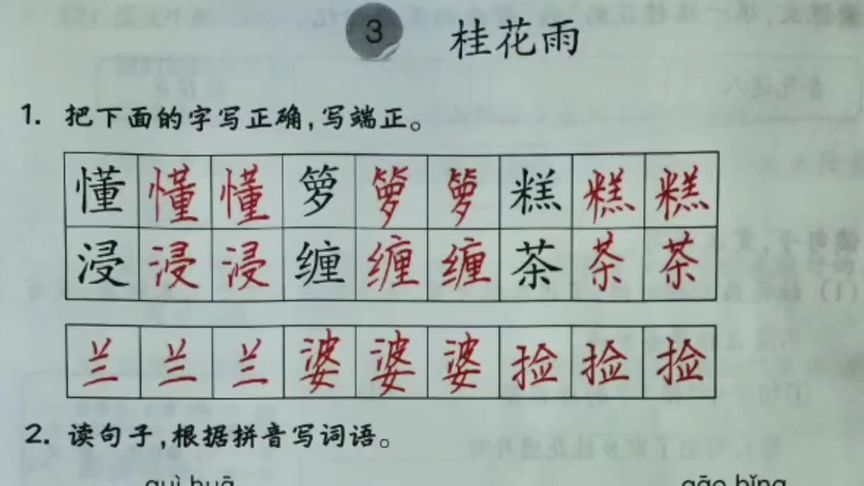 3 桂花雨
1. 把下面的字写正确,写端正。
懂 懂 懂 箩 箩 箩 糕 糕 糕
浸 浸 浸 缠 缠 缠 茶 茶 茶
兰 兰 兰 婆 婆 婆 捡 捡 捡
2. 读句子,根据拼音写词语。
guì huā gāo bǐng